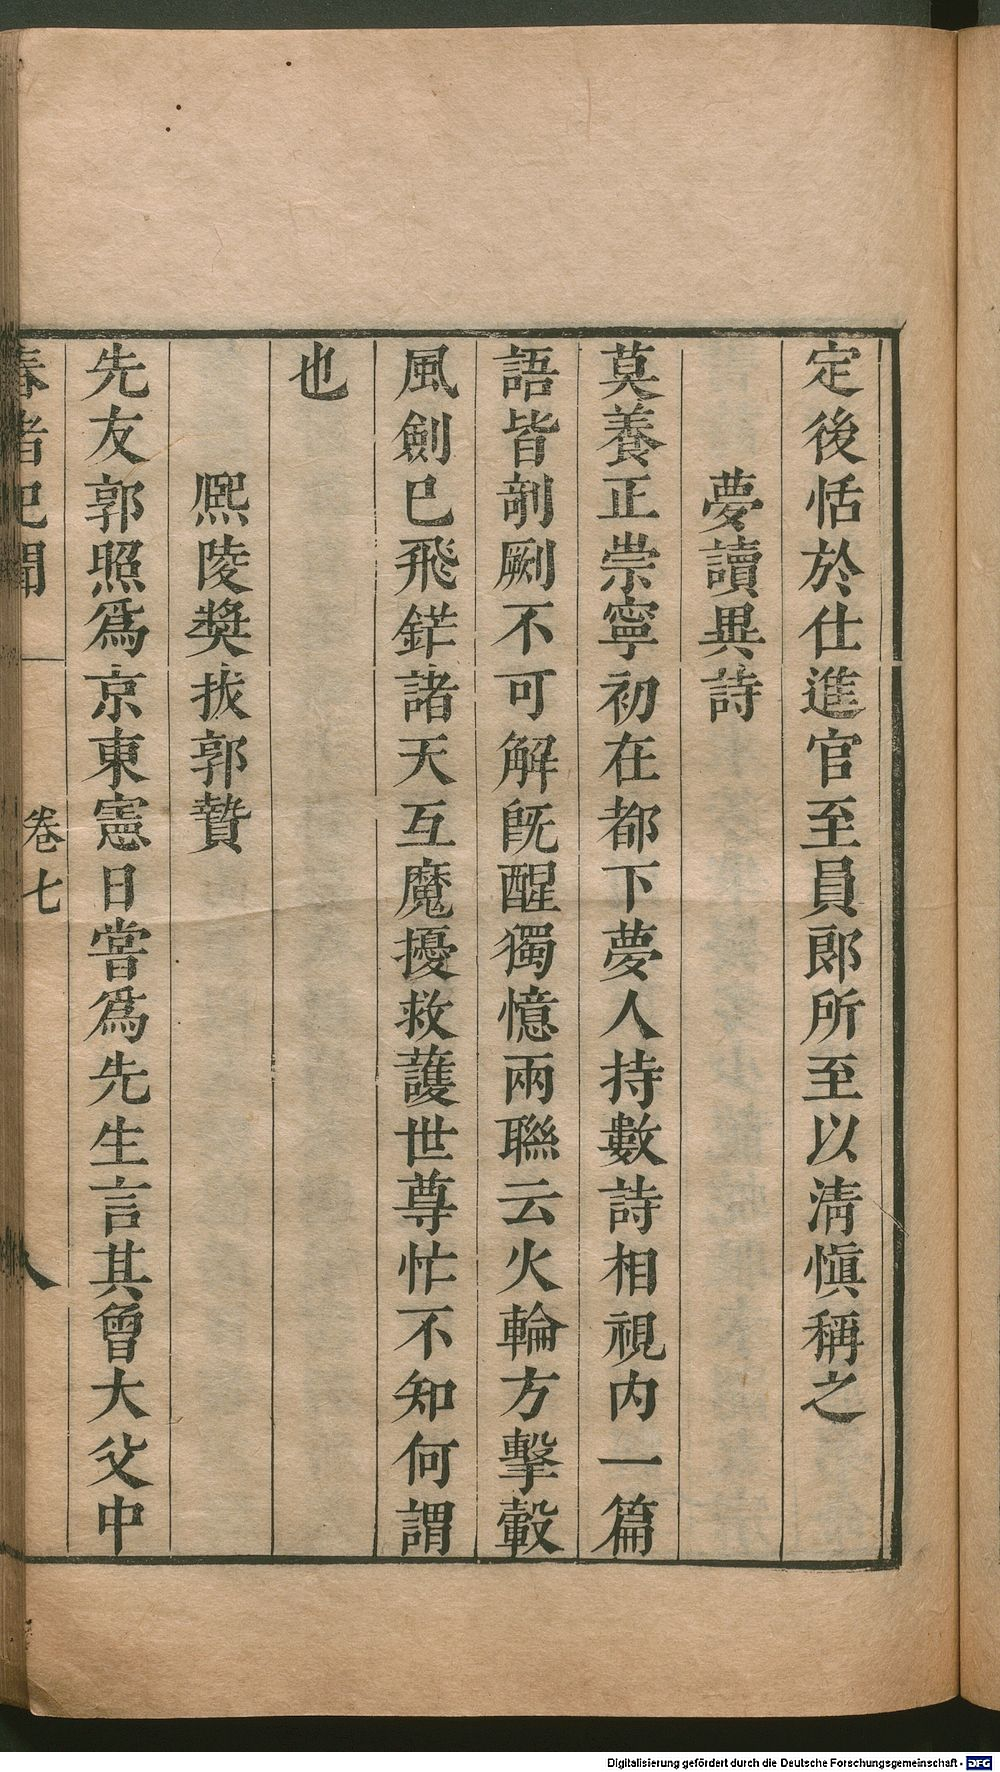 定後恬於仕進官至員郞所至以淸愼稱之
夢讀異詩
莫養正崇寧初在都下夢人持數詩相視内一篇
語皆剞劂不可解旣醒獨憶兩聯云火輪方擊轂
風劍已飛鋩諸天互魔擾救護世尊忙不知何謂
也
熈陵奬拔郭贄
先友郭照爲京東憲日嘗爲先生言其曾大父中
春渚記聞 卷七 八
Digitalisierung gefördert durch die Deutsche Forschungsgemeinschaft - DFG